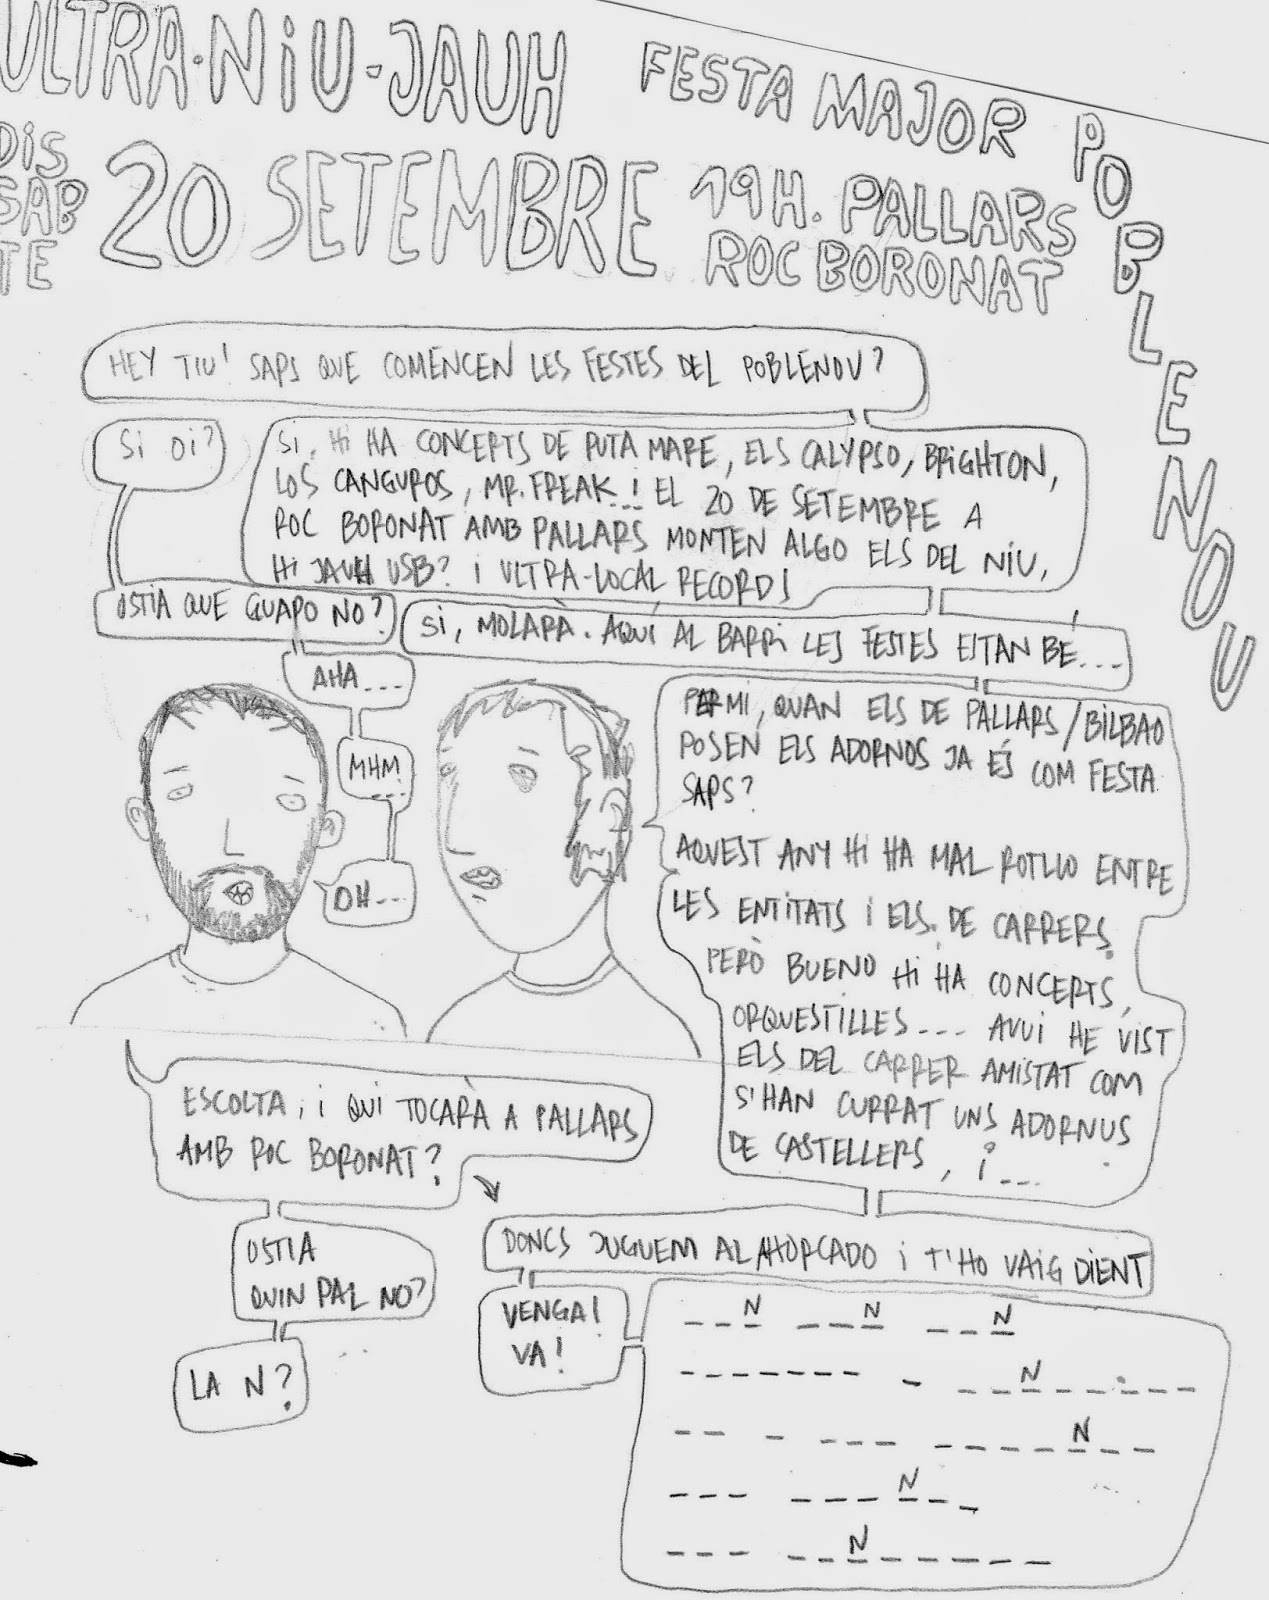 ULTRA·NIU-JAUH
FESTA MAJOR
POBLENOU
DIS
SAB
TE
20 SETEMBRE
19H. PALLARS
ROC BORONAT
HEY TIU! SAPS QUE COMENCEN LES FESTES DEL POBLENOU?
SI OI?
SI, HI HA CONCERTS DE PUTA MARE, ELS CALYPSO, BRIGHTON,
LOS CANGUROS, MR. FREAK...! EL 20 DE SETEMBRE A
ROC BORONAT AMB PALLARS MONTEN ALGO ELS DEL NIU,
HI JAUH USB? I ULTRA-LOCAL RECORDS
OSTIA QUE GUAPO NO?
SI, MOLARÀ. AQUÍ AL BARRI LES FESTES ESTAN BÉ...
AHA...
MHM...
OH...
PER MI, QUAN ELS DE PALLARS/BILBAO
POSEN ELS ADORNOS JA ÉS COM FESTA
SAPS?
AQUEST ANY HI HA MAL ROTLLO ENTRE
LES ENTITATS I ELS DE CARRERS.
PERÒ BUENO HI HA CONCERTS,
ORQUESTILLES... AVUI HE VIST
ELS DEL CARRER AMISTAT COM
S'HAN CURRAT UNS ADORNUS
DE CASTELLERS, I...
ESCOLTA, I QUI TOCARÀ A PALLARS
AMB ROC BORONAT?
DONCS JUGUEM AL AHORCADO I T'HO VAIG DIENT
OSTIA
QUIN PAL NO?
VENGA!
VA!
LA N?
_ _ N _ _ _ N _ _ _ N
_ _ _ _ _ _ _ _ _ _ N _ _ _ _ _
_ _ _ _ _ _ _ _ _ _ _ N _ _
_ _ _ _ _ _ N _ _
_ _ _ _ _ N _ _ _ _ _